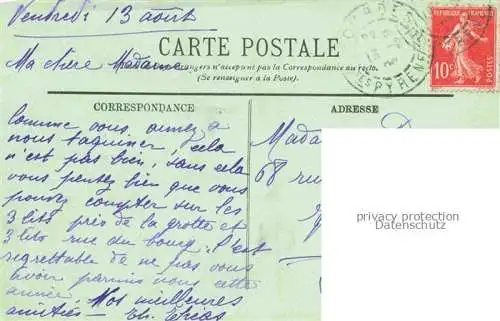 Vendredi 13 août
CARTE POSTALE
Ma chère Madame
étrangers n'acceptent pas la Correspondance au recto.
(Se renseigner à la Poste).
CORRESPONDANCE
Comme vous aimez à
nous taquiner, cela
n'est pas bien, sans cela
vous pensez bien que vous
pouvez compter sur les
3 lits près de la grotte et
3 lits rue du bourg. C'est
regrettable de ne pas vous
avoir parmi nous cette
année. Nos meilleures
amitiés -
ADRESSE
Mada
68 ru
REPUBLIQUE FRANÇAISE
10c
POSTES
LOURDES
PYRENEES
privacy protection
Datenschutz